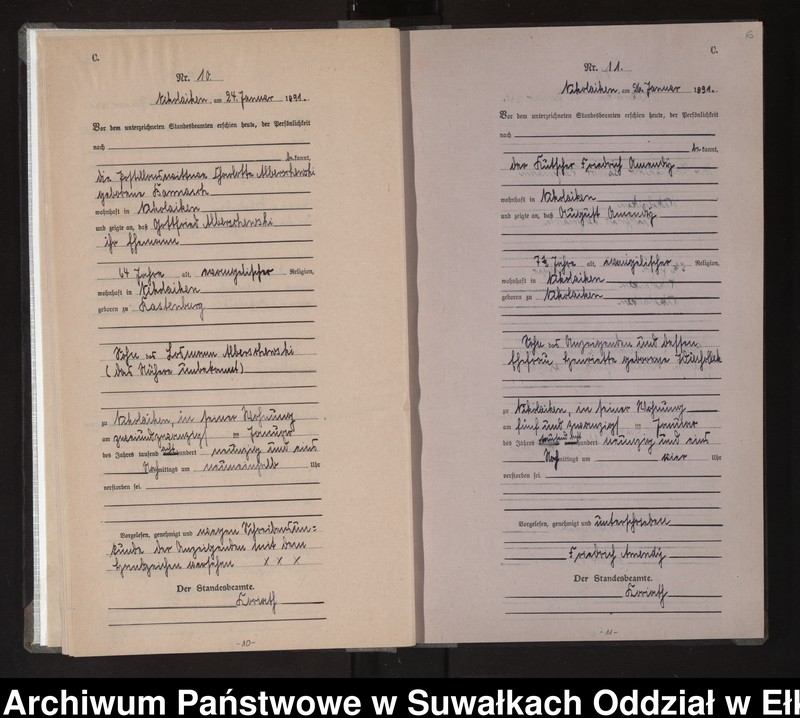 C.
Nr. 10.
Nikolaiken, am 24. Januar 1891.
Vor dem unterzeichneten Standesbeamten erschien heute, der Persönlichkeit
nach
bekannt,
die Charlotte
geborene
wohnhaft in Nikolaiken
und zeigte an, daß Gottfried
ihr Ehemann
64 Jahre alt, evangelischer Religion,
wohnhaft in Nikolaiken
geboren zu Rastenburg
Sohn des
(das Nähere unbekannt)
zu Nikolaiken, in seiner Wohnung
am zweiundzwanzigsten Januar
des Jahres tausend acht hundert neunzig und eins
Nachmittags um neuneinhalb Uhr
verstorben sei
Vorgelesen, genehmigt und wegen Schreibensun=
kunde der Anzeigenden mit dem
Handzeichen versehen x x x
Der Standesbeamte.
-10-
C.
Nr. 11.
Nikolaiken, am 26. Januar 1891.
Vor dem unterzeichneten Standesbeamten erschien heute, der Persönlichkeit
nach
bekannt,
der Friedrich Amendy
wohnhaft in Nikolaiken
und zeigte an, daß August Amendy
alt, evangelischer Religion,
wohnhaft in Nikolaiken
geboren zu Nikolaiken
Sohn des Anzeigenden und dessen
Ehefrau Henriette geborene
zu Nikolaiken, in seiner Wohnung
am fünf und zwanzigsten Januar
des Jahres tausend acht hundert neunzig und eins
Nachmittags um vier Uhr
verstorben sei
Vorgelesen, genehmigt und unterschrieben
Friedrich Amendy
Der Standesbeamte.
-11-
Archiwum Państwowe w Suwałkach Oddział w Ełk